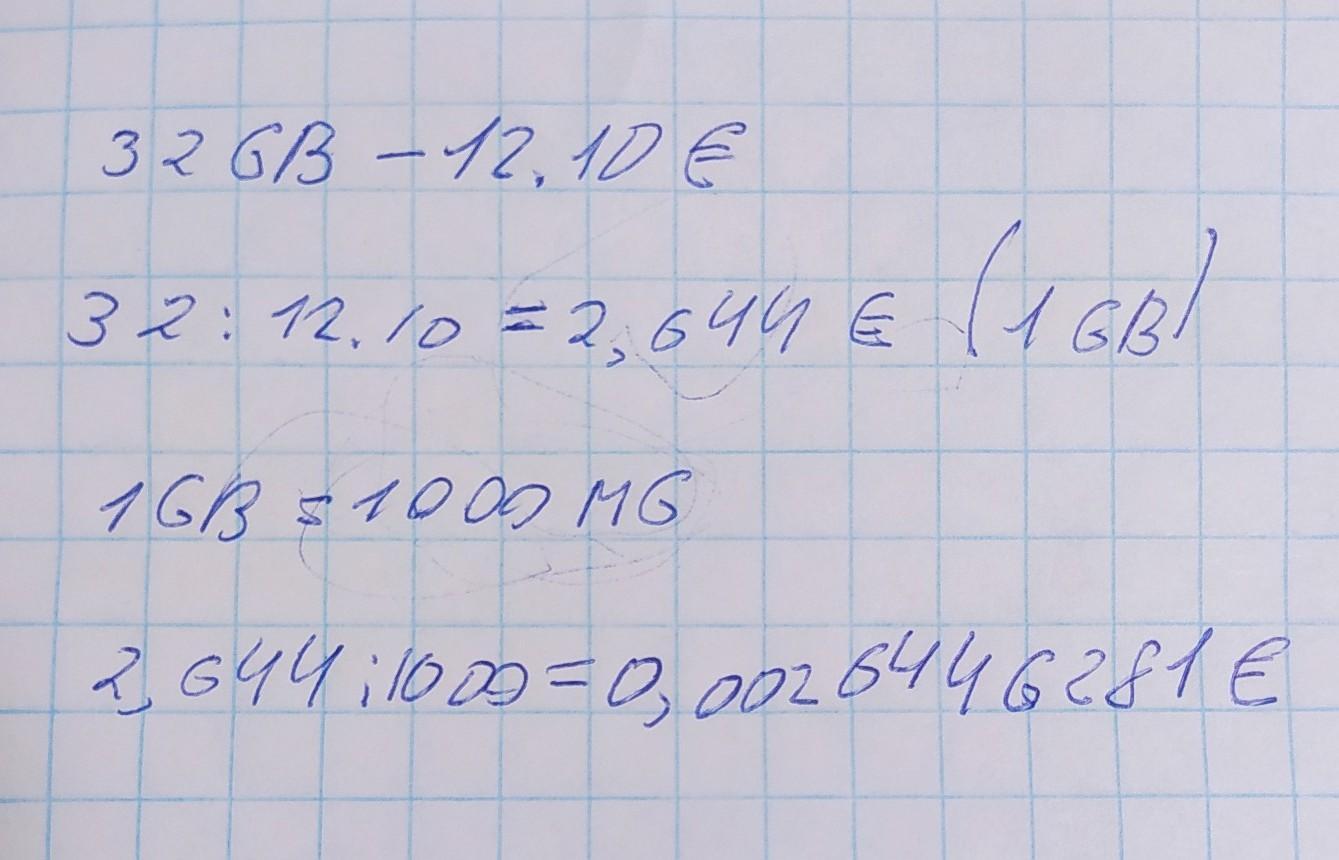 32 GB - 12.10 €
32 : 12.10 = 2,644 € (1 GB)
1 GB = 1000 MG
2,644 : 1000 = 0,0026446281 €